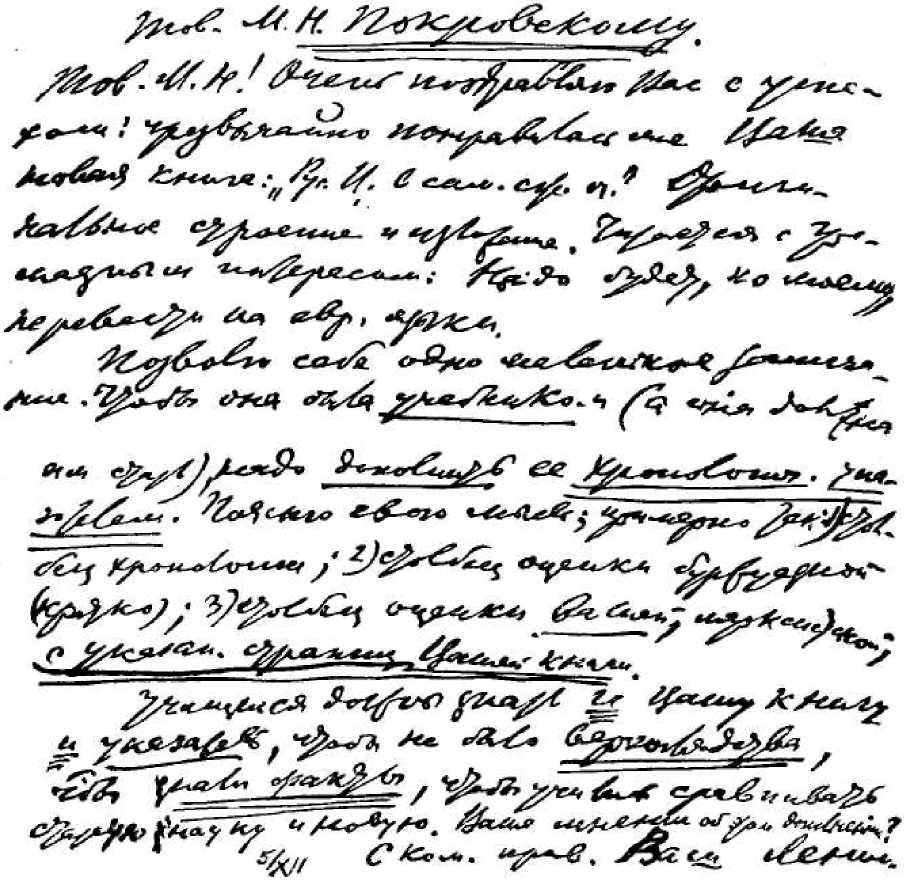 Тов. М. Н. Покровскому.
Тов. М. Н.! Очень поздравляю Вас с успе-
хом: чрезвычайно понравилась мне Ваша
новая книга: „Рус. И. в сам. сж. оч.“ Ориги-
нальное строение и изложение. Читается с гро-
мадным интересом. Надо будет, по-моему,
перевести на евр. языки.
Позволю себе одно маленькое замеча-
ние. Чтобы она была учебником (а она должна
им стать), надо дополнить ее хронологич. ука-
зателем. Поясню свою мысль; примерно так: 1) стол-
бец хронологии; 2) столбец оценки буржуазной
(кратко); 3) столбец оценки Вашей, марксистской;
с указан. страниц Вашей книги.
Учащиеся должны знать и Вашу книгу
и указатель, чтобы не было верхоглядства,
чтобы знали факты, чтобы учились сравнивать
старую науку и новую. Ваше мнение об этом дополнении?
5/XII С ком. прив. Ваш Ленин.